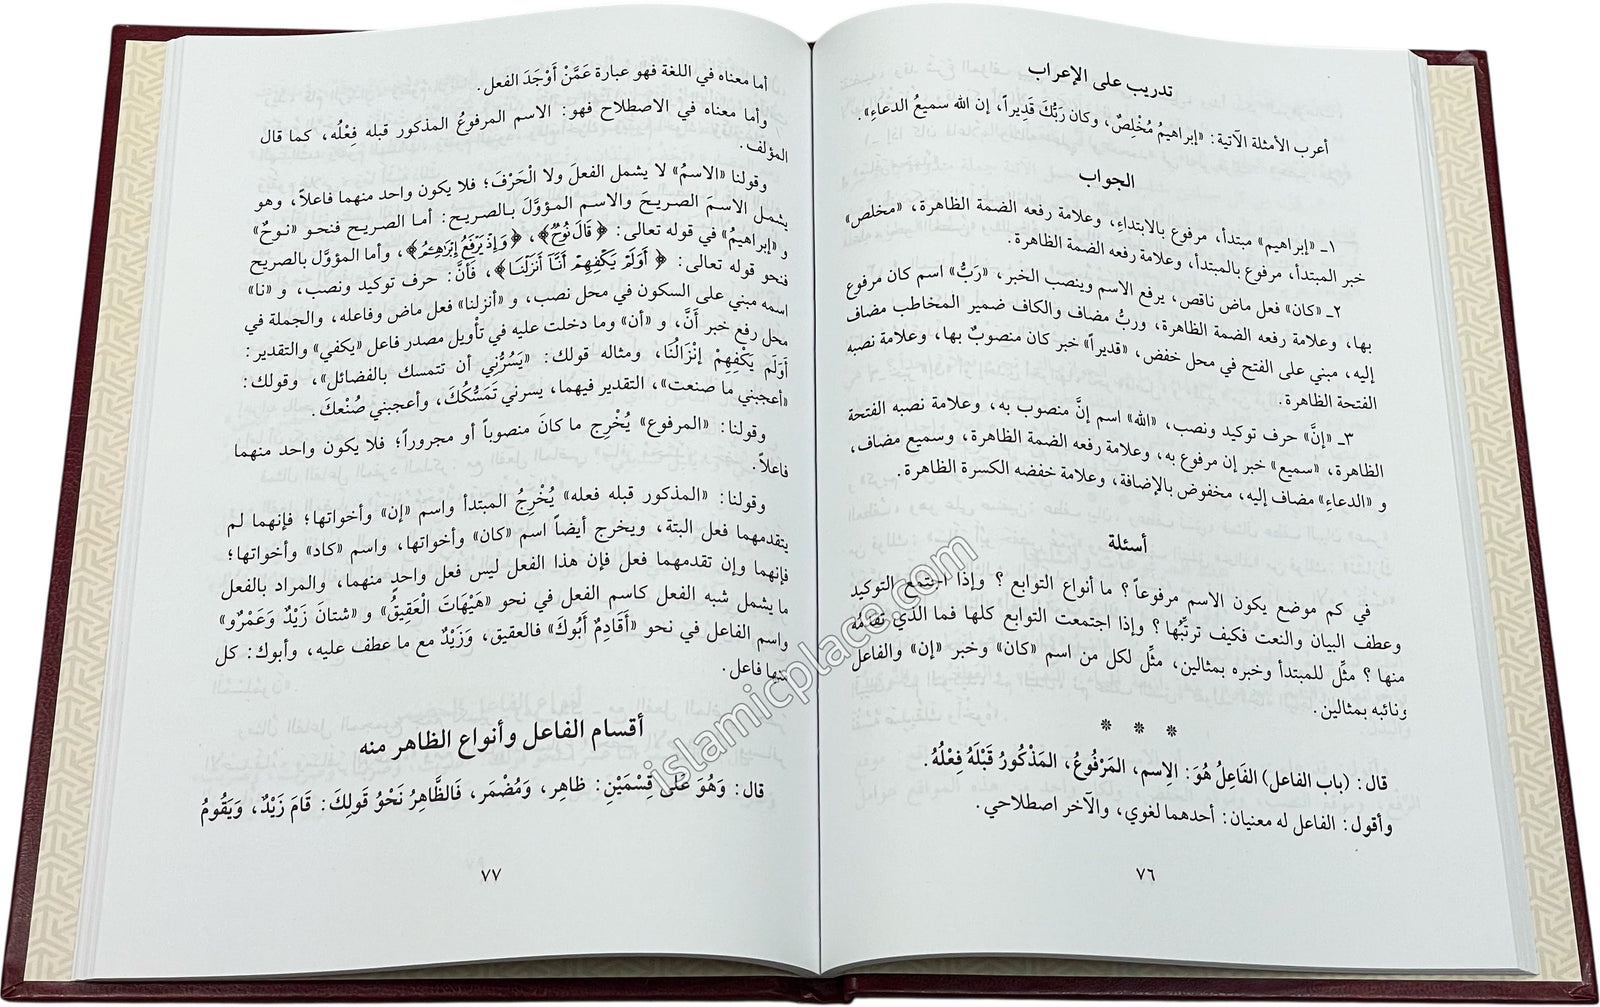 تدريب على الإعراب
أعرب الأمثلة الآتية: «إبراهيمُ مُخْلِصٌ، وكان رَبُّكَ قَدِيراً، إن الله سميعُ الدعاءِ».
الجواب
١ـ «إبراهيم» مبتدأ، مرفوع بالابتداءِ، وعلامة رفعه الضمة الظاهرة، «مخلص»
خبر المبتدأ، مرفوع بالمبتدأ، وعلامة رفعه الضمة الظاهرة.
٢ـ «كان» فعل ماض ناقص، يرفع الاسم وينصب الخبر، «رَبُّ» اسم كان مرفوع
بها، وعلامة رفعه الضمة الظاهرة، وربُّ مضاف والكاف ضمير المخاطب مضاف
إليه، مبني على الفتح في محل خفض، «قديراً» خبر كان منصوبٌ بها، وعلامة نصبه
الفتحة الظاهرة.
٣ـ «إنَّ» حرف توكيد ونصب، «الله» اسم إنَّ منصوب به، وعلامة نصبه الفتحة
الظاهرة، «سميع» خبر إن مرفوع به، وعلامة رفعه الضمة الظاهرة، وسميع مضاف،
و «الدعاءِ» مضاف إليه، مخفوض بالإضافة، وعلامة خفضه الكسرة الظاهرة.
أسئلة
في كم موضع يكون الاسم مرفوعاً؟ ما أنواع التوابع؟ وإذا اجتمع التوكيد
وعطف البيان والنعت فكيف ترتِّبُها؟ وإذا اجتمعت التوابع كلها فما الذي تقدِّمُه
منها؟ مثِّل للمبتدأ وخبره بمثالين، مثِّل لكل من اسم «كان» وخبر «إن» والفاعل
ونائبه بمثالين.
* * *
قال: (باب الفاعل) الفَاعِلُ هُوَ: الِاسم، المَرْفُوعُ، المَذْكُورُ قَبْلَهُ فِعْلُهُ.
وأقول: الفاعل له معنيان: أحدهما لغوي، والآخر اصطلاحي.
٧٦
أما معناه في اللغة فهو عبارة عَمَّنْ أَوْجَدَ الفعل.
وأما معناه في الاصطلاح فهو: الاسم المرفوعُ المذكور قبله فِعْلُه، كما قال
المؤلف.
وقولنا «الاسمُ» لا يشمل الفعلَ ولا الْحَرْفَ؛ فلا يكون واحد منهما فاعلاً، وهو
يشمل الاسمَ الصريحَ والاسم المؤوَّلَ بالصريح: أما الصريح فنحو «نوحٌ»
و «إبراهيمُ» في قوله تعالى: ﴿قَالَ نُوحٌ﴾، ﴿وَإِذْ يَرْفَعُ إِبْرَاهِيمُ﴾، وأما المؤوَّل بالصريح
فنحو قوله تعالى: ﴿أَوَلَمْ يَكْفِهِمْ أَنَّا أَنزَلْنَا﴾، فَأَنَّ: حرف توكيد ونصب، و «نا»
اسمه مبني على السكون في محل نصب، و «أنزلنا» فعل ماض وفاعله، والجملة في
محل رفع خبر أَنَّ، و «أن» وما دخلت عليه في تأويل مصدر فاعل «يكفي» والتقدير:
أَوَلَمْ يَكْفِهِمْ إنْزَالُنَا، ومثاله قولك: «يَسُرُّنِي أن تتمسك بالفضائل»، وقولك:
«أعجبني ما صنعت»، التقدير فيهما، يسرني تَمَسُّكُكَ، وأعجبني صُنْعكَ.
وقولنا: «المرفوع» يُخْرِج ما كانَ منصوباً أو مجروراً؛ فلا يكون واحد منهما
فاعلاً.
وقولنا: «المذكور قبله فعله» يُخْرِجُ المبتدأ واسم «إن» وأخواتها؛ فإنهما لم
يتقدمهما فعل البتة، ويخرج أيضاً اسم «كان» وأخواتها، واسم «كاد» وأخواتها؛
فإنهما وإن تقدمهما فعل فإن هذا الفعل ليس فعل واحدٍ منهما، والمراد بالفعل
ما يشمل شبه الفعل كاسم الفعل في نحو «هَيْهَاتَ الْعَقِيقُ» و «شتانَ زَيْدٌ وَعَمْرٌو»
واسم الفاعل في نحو «أَقَادِمٌ أَبُوكَ» فالعقيق، وَزَيْدٌ مع ما عطف عليه، وأبوك: كل
منها فاعل.
أقسام الفاعل وأنواع الظاهر منه
قال: وَهُوَ عَلَى قِسْمَيْنِ: ظاهِرٍ، وَمُضْمَر، فَالظَّاهِرُ نَحْوُ قَولِكَ: قَامَ زَيْدٌ، وَيَقُومُ
٧٧
islamicplace.com